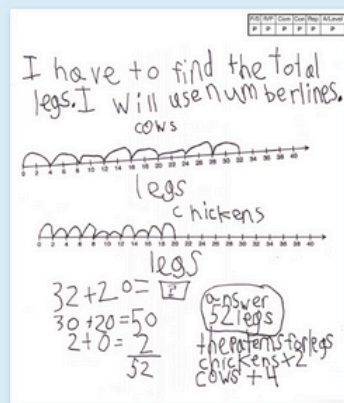 P/S R/P Com Con Rep A/Level
P P P P P P
I have to find the total
legs. I will use number lines.
cows
0 2 4 6 8 10 12 14 16 18 20 22 24 26 28 30 32 34 36 38 40
legs
chickens
0 2 4 6 8 10 12 14 16 18 20 22 24 26 28 30 32 34 36 38 40
legs
32+20= ?
30+20=50
2+0=2
52
answer
52 legs
the paterns for legs
chickens +2
cows +4